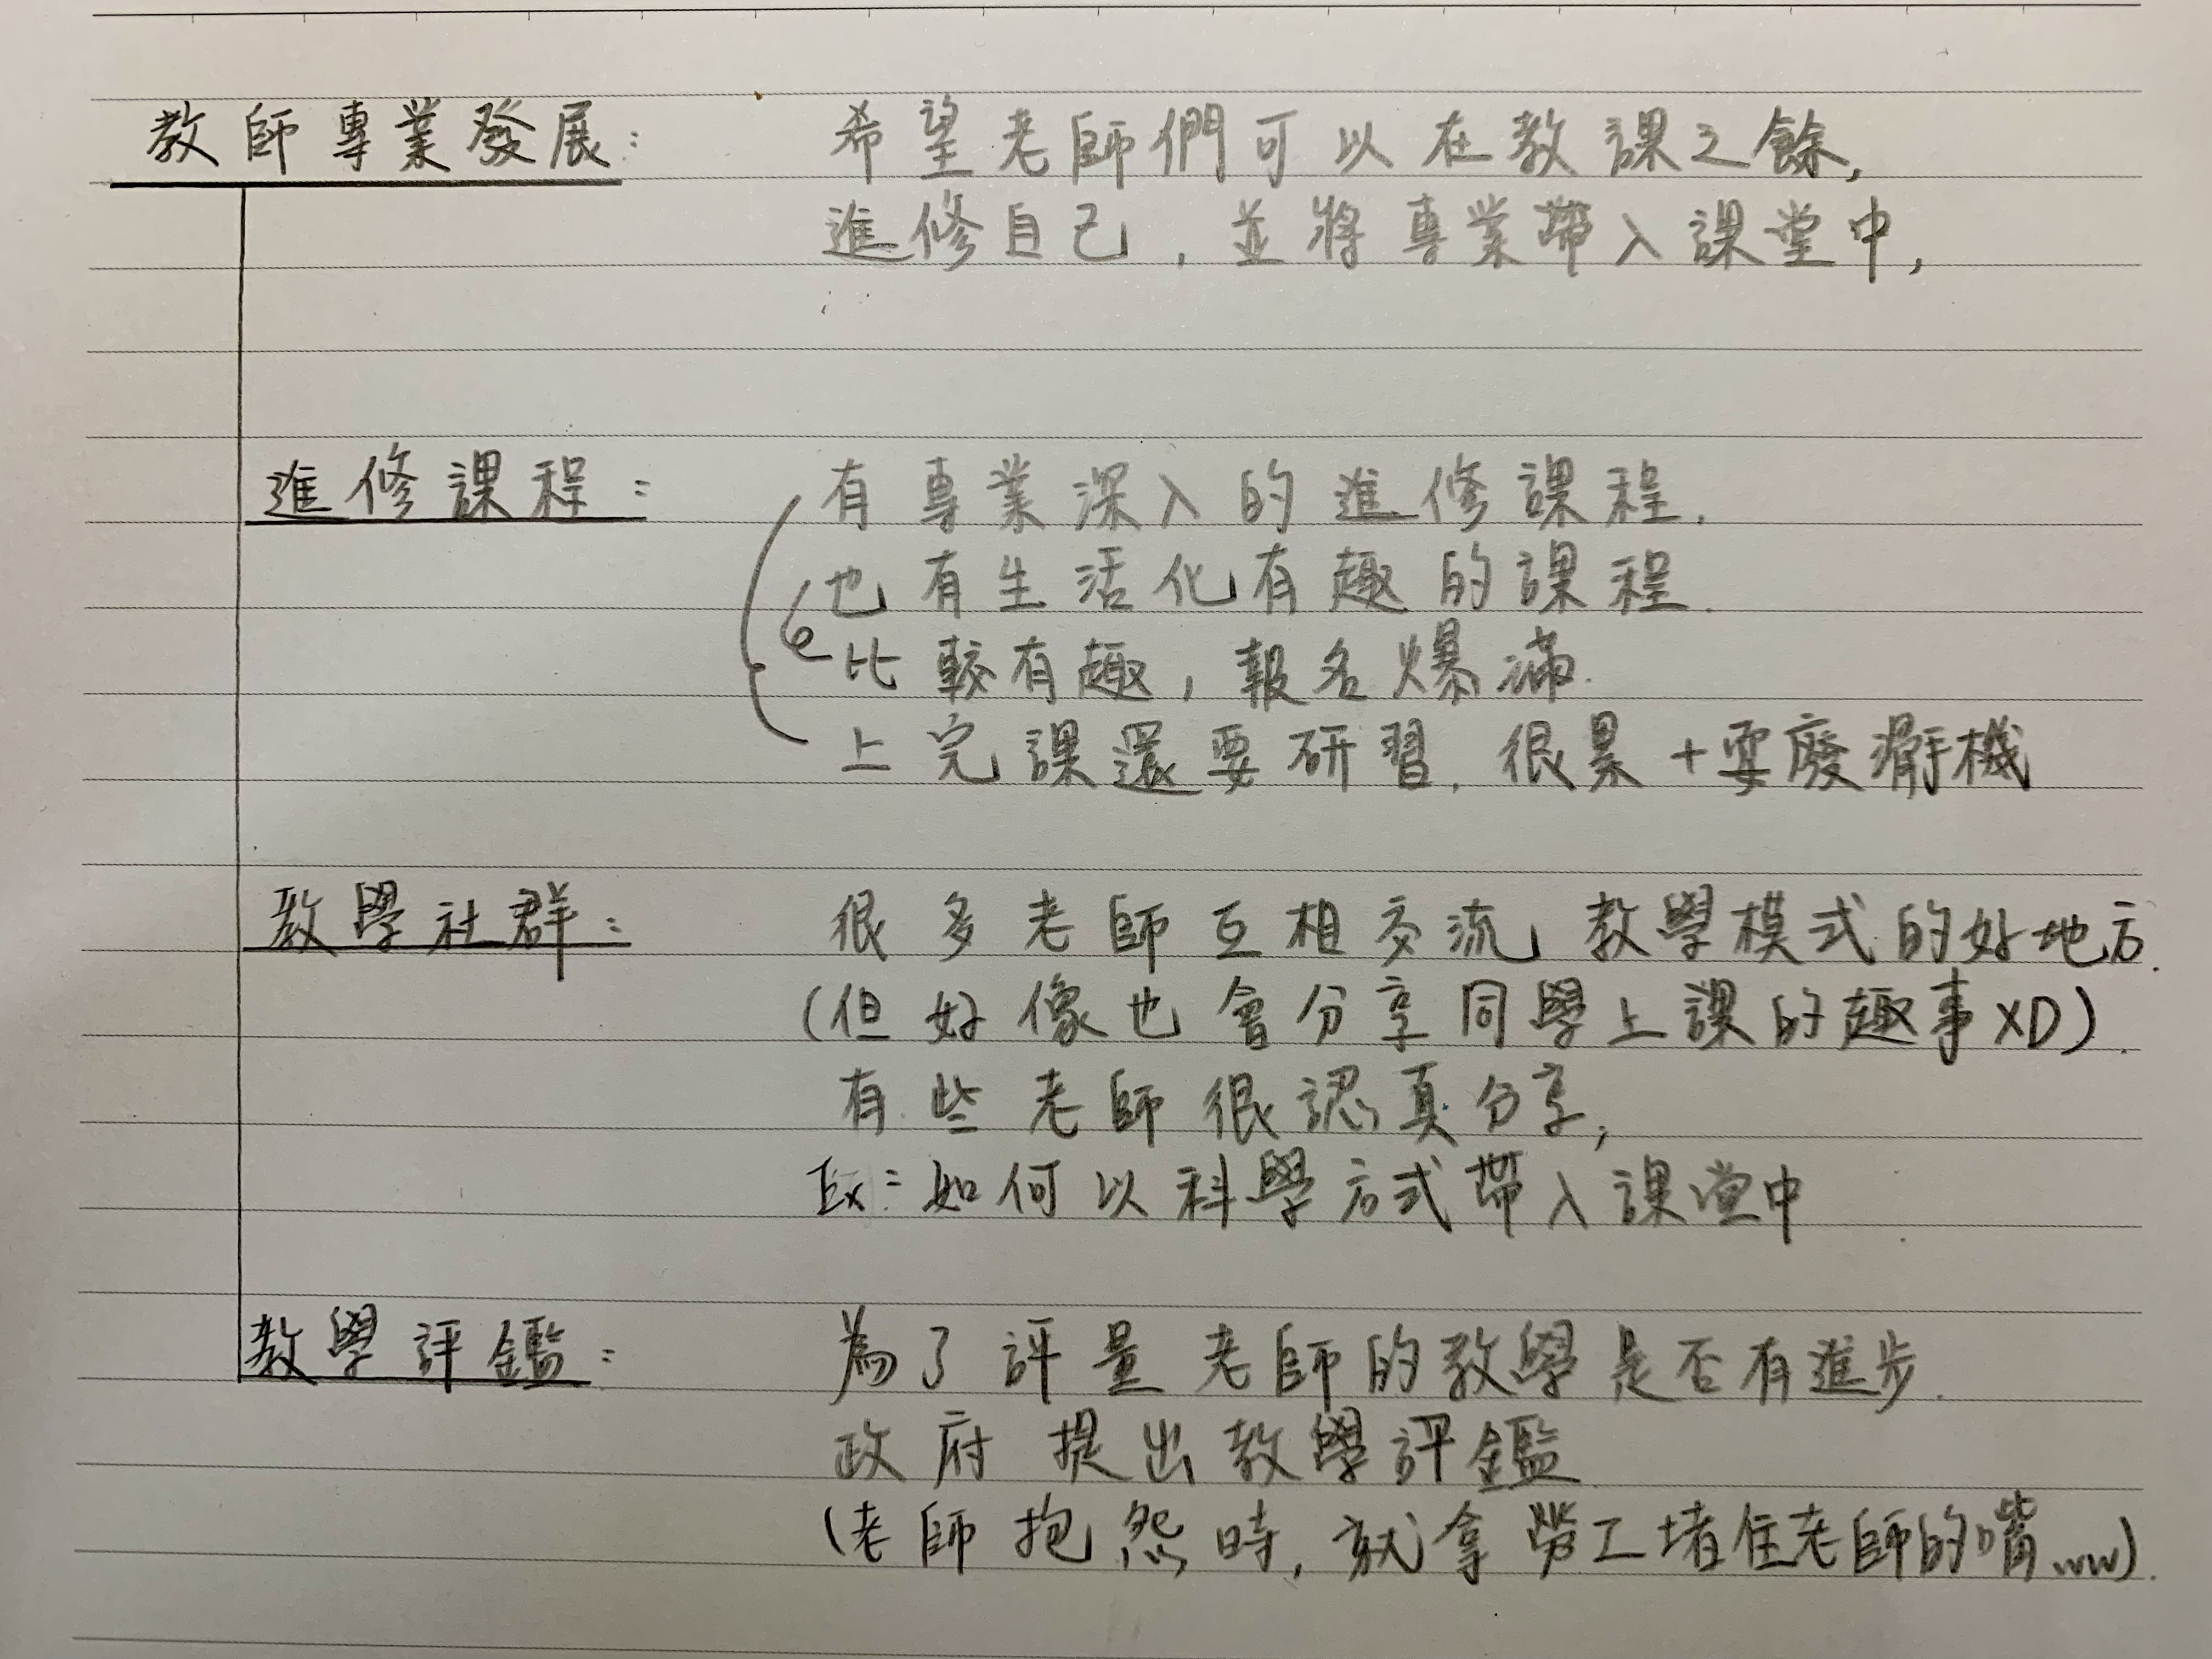 教師專業發展： 希望老師們可以在教課之餘,
進修自己，並將專業帶入課堂中,
進修課程： 有專業深入的進修課程.
也有生活化有趣的課程.
比較有趣，報名爆滿.
上完課還要研習. 很累+耍廢滑手機
教學社群： 很多老師互相交流教學模式的好地方.
(但好像也會分享同學上課的趣事XD).
有些老師很認真分享,
Ex: 如何以科學方式帶入課堂中
教學評鑑： 為了評量老師的教學是否有進步.
政府提出教學評鑑
(老師抱怨時,就拿勞工堵住老師的嘴ww).